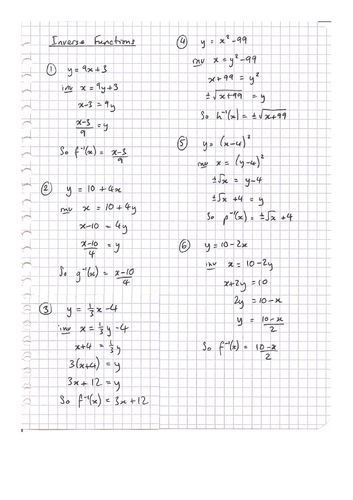 Inverse Functions
① y = 9x+3
inv x = 9y+3
x-3 = 9y
x-3/9 = y
So f⁻¹(x) = x-3/9
② y = 10 + 4x
inv x = 10 + 4y
x-10 = 4y
x-10/4 = y
So g⁻¹(x) = x-10/4
③ y = 1/3 x - 4
inv x = 1/3 y - 4
x+4 = 1/3 y
3(x+4) = y
3x + 12 = y
So f⁻¹(x) = 3x + 12
④ y = x² - 99
inv x = y² - 99
x+99 = y²
±√x+99 = y
So h⁻¹(x) = ±√x+99
⑤ y = (x-4)²
inv x = (y-4)²
±√x = y-4
±√x + 4 = y
So p⁻¹(x) = ±√x + 4
⑥ y = 10-2x
inv x = 10-2y
x+2y = 10
2y = 10-x
y = 10-x/2
So f⁻¹(x) = 10-x/2